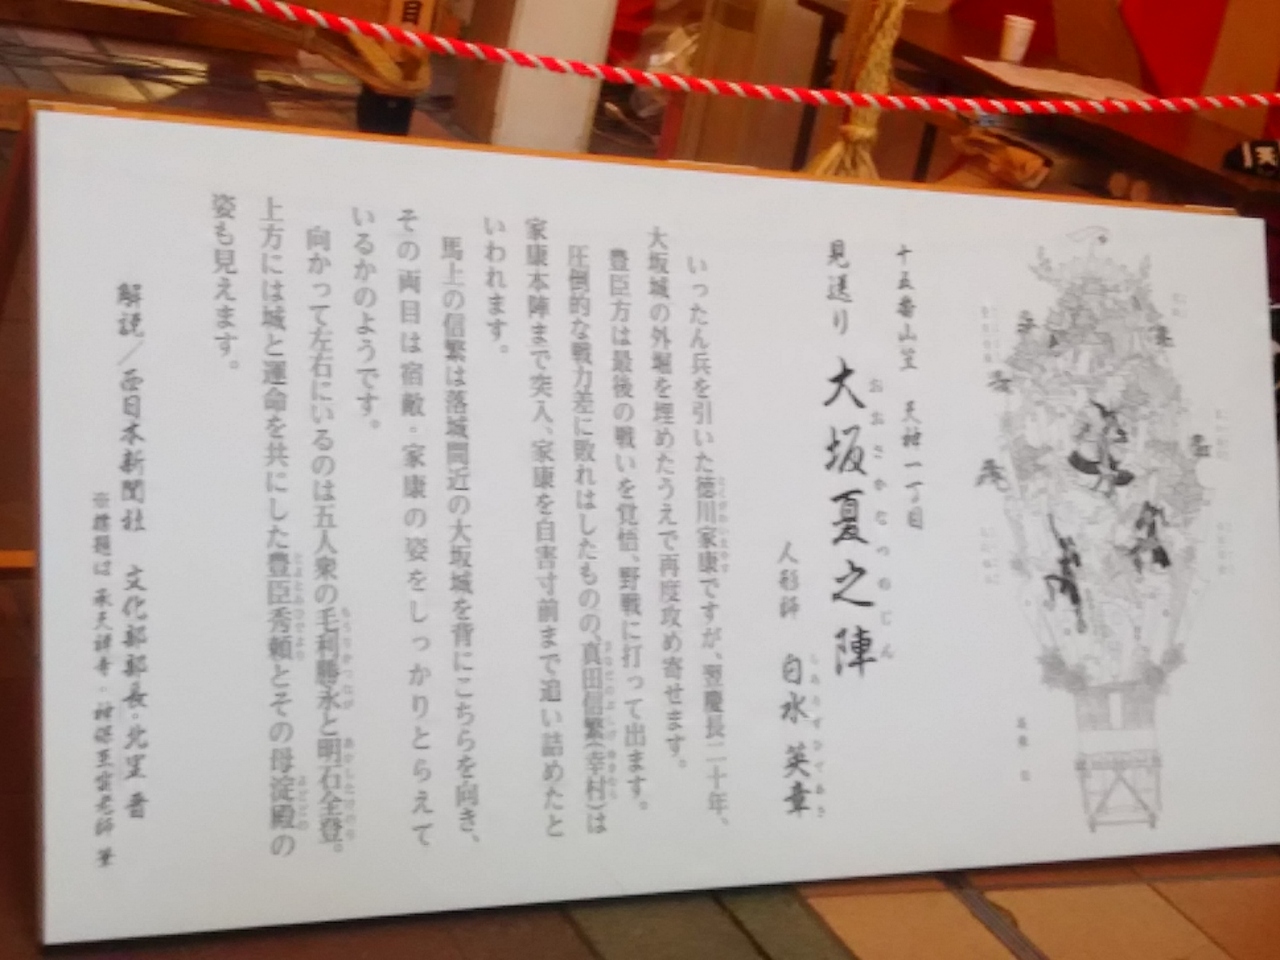 十五番山笠 天神一丁目
見送り 大坂夏之陣
おおさかなつのじん
人形師 白水 英章
しろうず ひであき
いったん兵を引いた徳川家康ですが、翌慶長二十年、
大坂城の外堀を埋めたうえで再度攻め寄せます。
豊臣方は最後の戦いを覚悟、野戦に打って出ます。
圧倒的な戦力差に敗れはしたものの、真田信繁(幸村)は
家康本陣まで突入、家康を自害寸前まで追い詰めたと
いわれます。
馬上の信繁は落城間近の大坂城を背にこちらを向き、
その両目は宿敵・家康の姿をしっかりとらえて
いるかのようです。
向かって左右にいるのは五人衆の毛利勝永と明石全登。
上方には城と運命を共にした豊臣秀頼とその母淀殿の
姿も見えます。
解説/西日本新聞社 文化部部長・北里 晋
※標題は 承天禅寺・神保至雲老師 筆
目